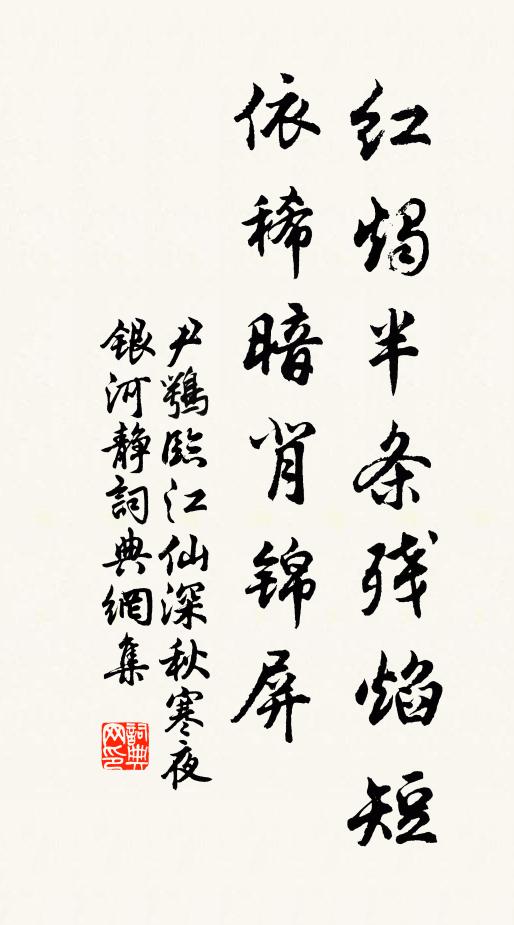 红燭半条残焰短
依稀暗背锦屏
尹鶚臨江仙深秋寒夜
银河静詞典網集
詞典网印